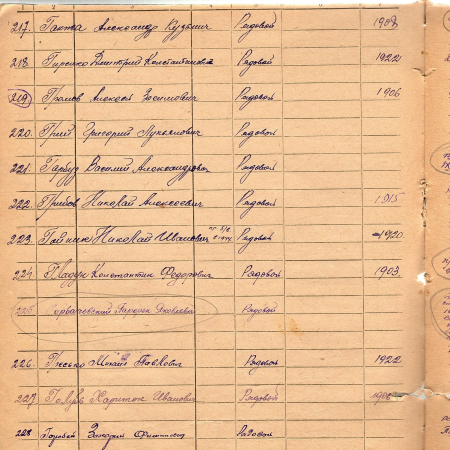 217. Гаюта Александр Кузьмич Рядовой 1908
218. Гиренко Дмитрий Константинович Рядовой 1922
219 Громов Алексей Зосимович Рядовой 1906
220. Григорий Лукьянович Рядовой
221. Гарбуз Василий Александрович Рядовой
222. Грибов Николай Алексеевич Рядовой 1915
223. Николай Иванович Рядовой 1920
224. Гладун Константин Федорович Рядовой 1903
225 Горбачевский Яковлевич Рядовой
226. Михаил Павлович Рядовой 1922
227 Голубь Харитон Иванович Рядовой 1906
228 Захарий Рядовой